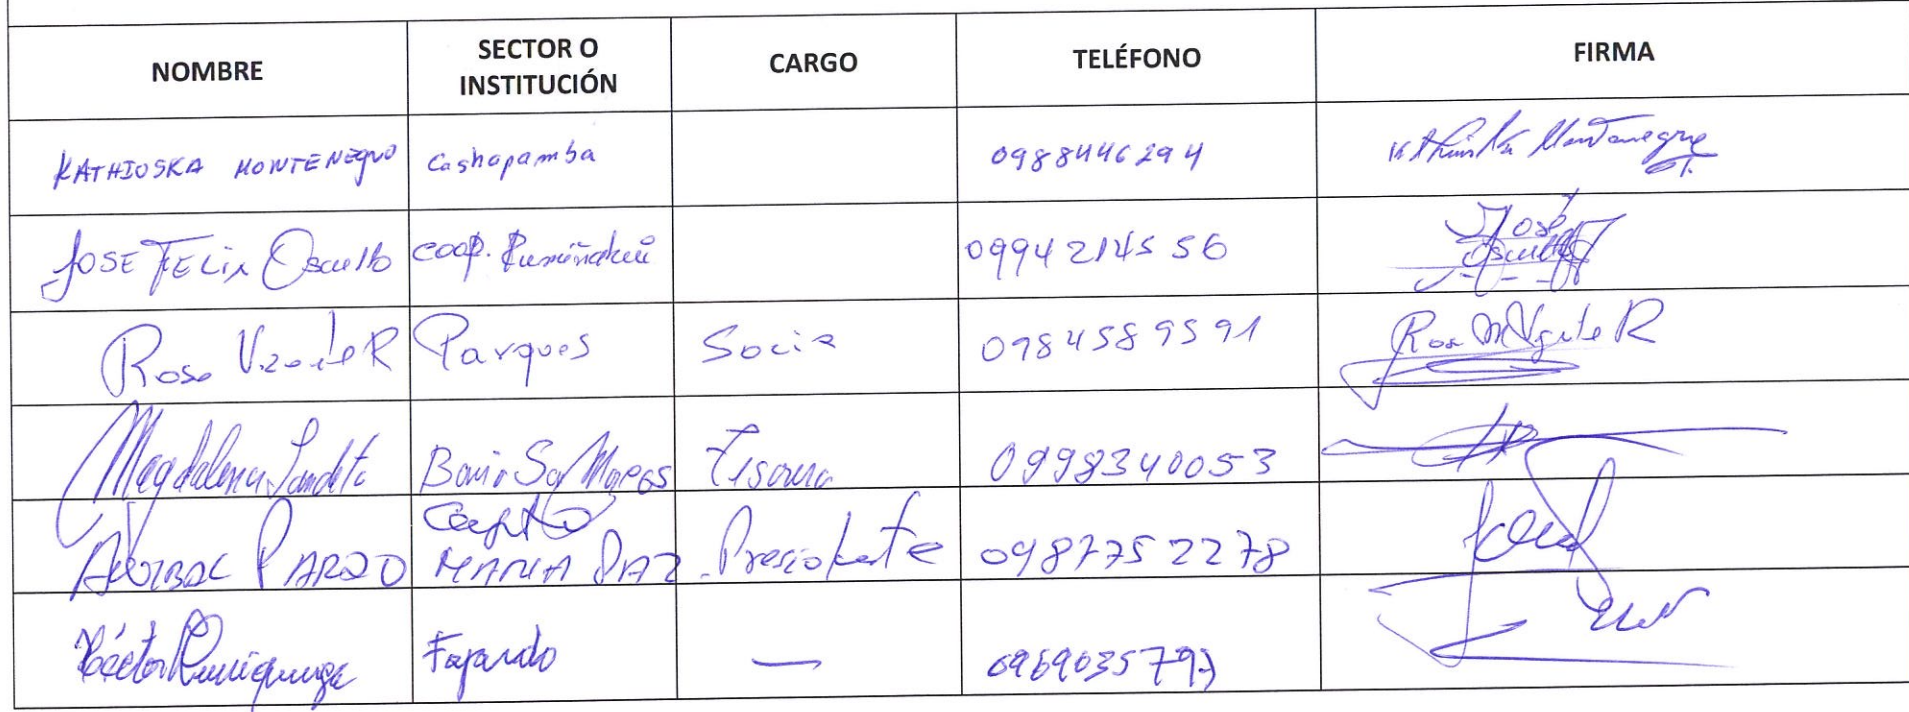 NOMBRE SECTOR O INSTITUCIÓN CARGO TELÉFONO FIRMA
KATHIOSKA MONTENEGRO Cashapamba 0988446294 Montenegro
JOSE FELIX Osculto COOP. Rumiñahui 0994214556 José Osculto
Rosa R Parques Socia 0984589591 Rosa M R
Magdalena Landeta Barrio San Marcos 0998340053
PARDO MARIA PAZ Presidente 0987752278
Héctor Fajardo — 0969035793